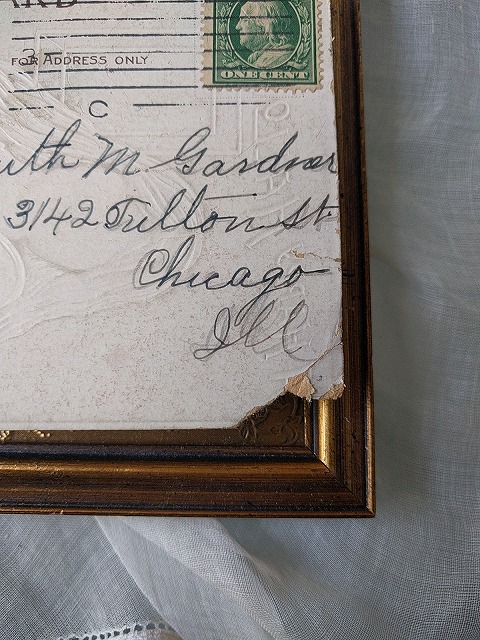 ARD
3
FOR ADDRESS ONLY
ONE CENT
C
uth M Gardner
3142 Fulton St.
Chicago
Ill